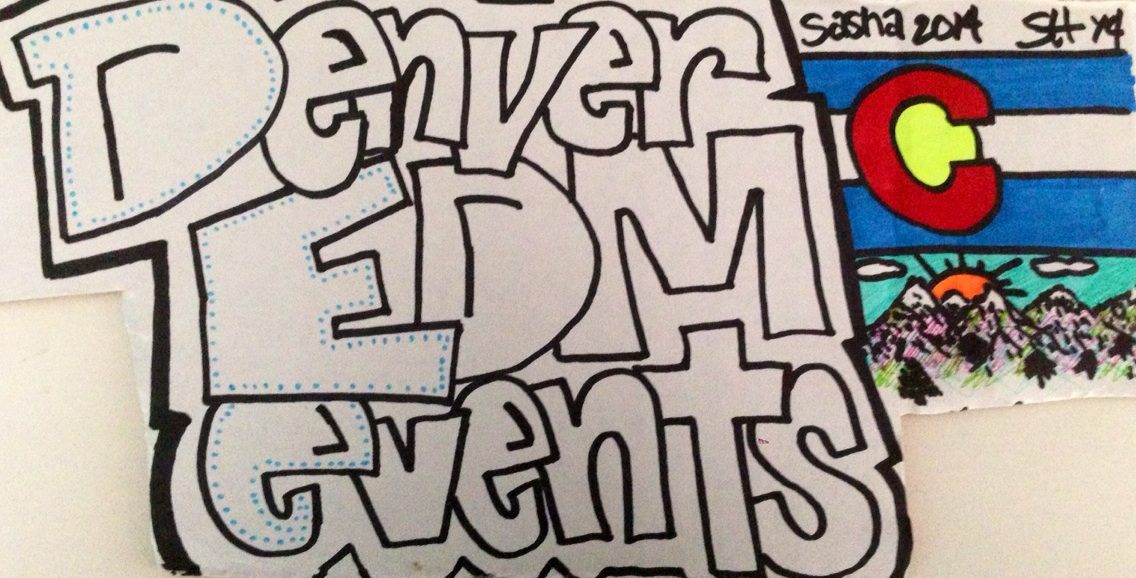 Denver
EDM
events
Sasha 2014